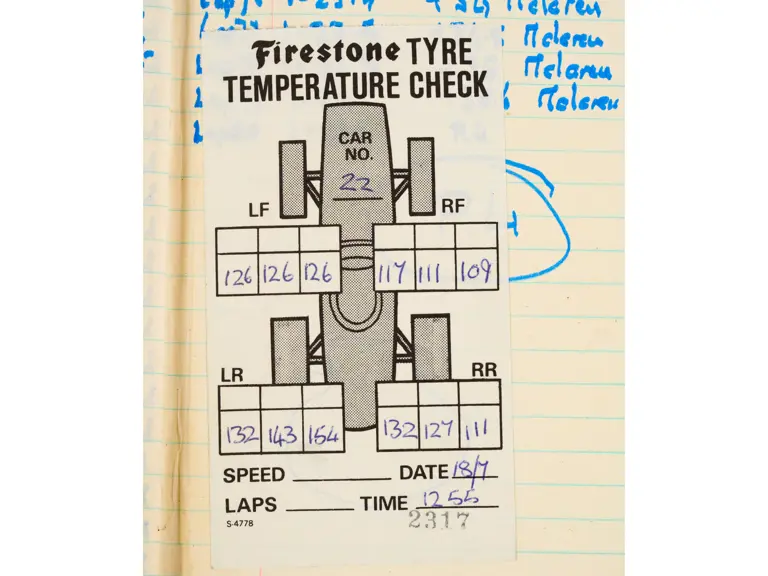 Mclaren
Mclaren
Mclaren
Mclaren
Firestone TYRE
TEMPERATURE CHECK
CAR
NO.
22
LF RF
126 126 126 117 111 109
LR RR
132 143 154 132 127 111
SPEED DATE 18/7
LAPS TIME 12 55
S-4778
2317